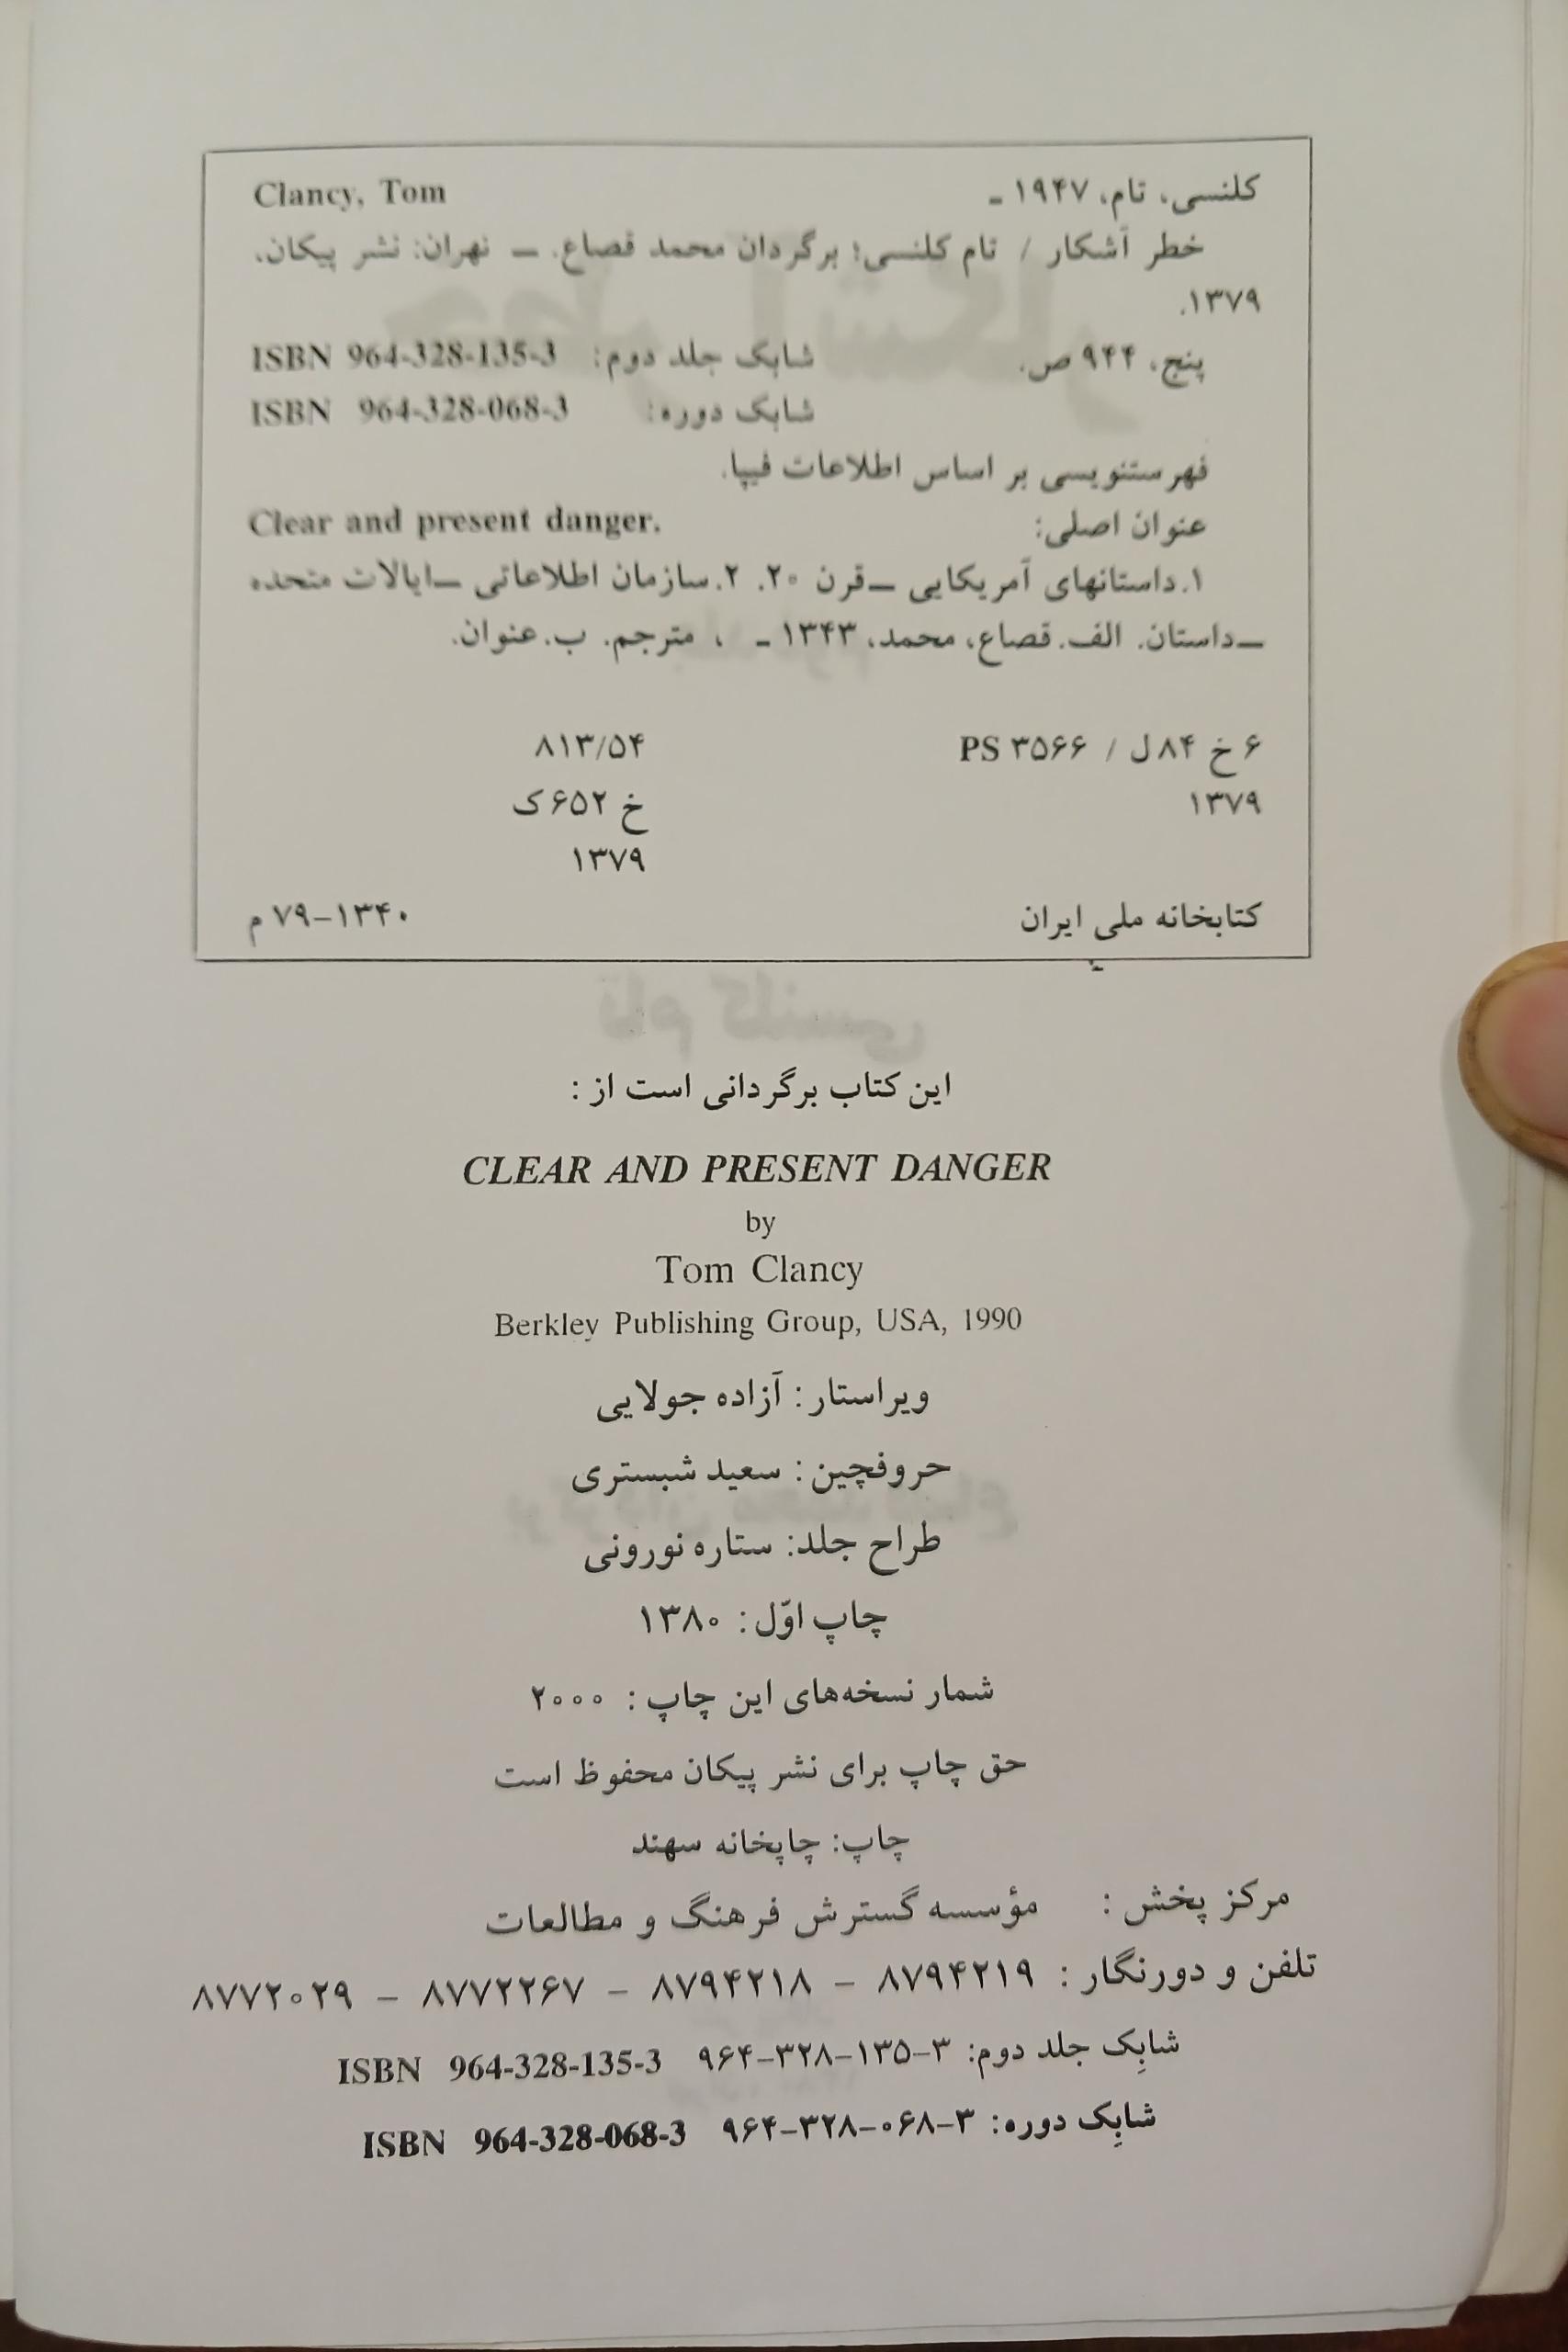 کلنسی، تام، ۱۹۴۷ ـ Clancy, Tom
خطر آشکار / تام کلنسی؛ برگردان محمد قصاع. ـ تهران: نشر پیکان،
۱۳۷۹.
پنج، ۹۴۴ ص. شابک جلد دوم: ISBN 964-328-135-3
شابک دوره: ISBN 964-328-068-3
فهرستنویسی بر اساس اطلاعات فیپا.
عنوان اصلی: Clear and present danger.
۱.داستانهای آمریکایی ــقرن ۲۰. ۲.سازمان اطلاعاتی ــایالات متحده
ــداستان. الف.قصاع، محمد، ۱۳۴۳ ـ ، مترجم. ب.عنوان.
۶ خ ۸۴ ل / PS ۳۵۶۶ ۸۱۳/۵۴
۱۳۷۹ خ ۶۵۲ ک
۱۳۷۹
کتابخانه ملی ایران ۱۳۴۰-۷۹ م
این کتاب برگردانی است از :
CLEAR AND PRESENT DANGER
by
Tom Clancy
Berkley Publishing Group, USA, 1990
ویراستار : آزاده جولایی
حروفچین : سعید شبستری
طراح جلد: ستاره نورونی
چاپ اوّل : ۱۳۸۰
شمار نسخه‌های این چاپ : ۲۰۰۰
حق چاپ برای نشر پیکان محفوظ است
چاپ: چاپخانه سهند
مرکز پخش : مؤسسه گسترش فرهنگ و مطالعات
تلفن و دورنگار : ۸۷۹۴۲۱۹ - ۸۷۹۴۲۱۸ - ۸۷۷۲۲۶۷ - ۸۷۷۲۰۲۹
شابِک جلد دوم: ۳-۱۳۵-۳۲۸-۹۶۴ ISBN 964-328-135-3
شابِک دوره: ۳-۰۶۸-۳۲۸-۹۶۴ ISBN 964-328-068-3